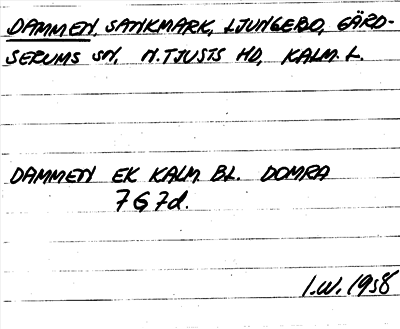 DAMMEN, SANKMARK, LJUNGEBO, GÄRD-
SERUMS SN, N. TJUSTS HD, KALM. L.
DAMMEN EK KALM. BL. DOMRA
7G7d.
I.W. 1958